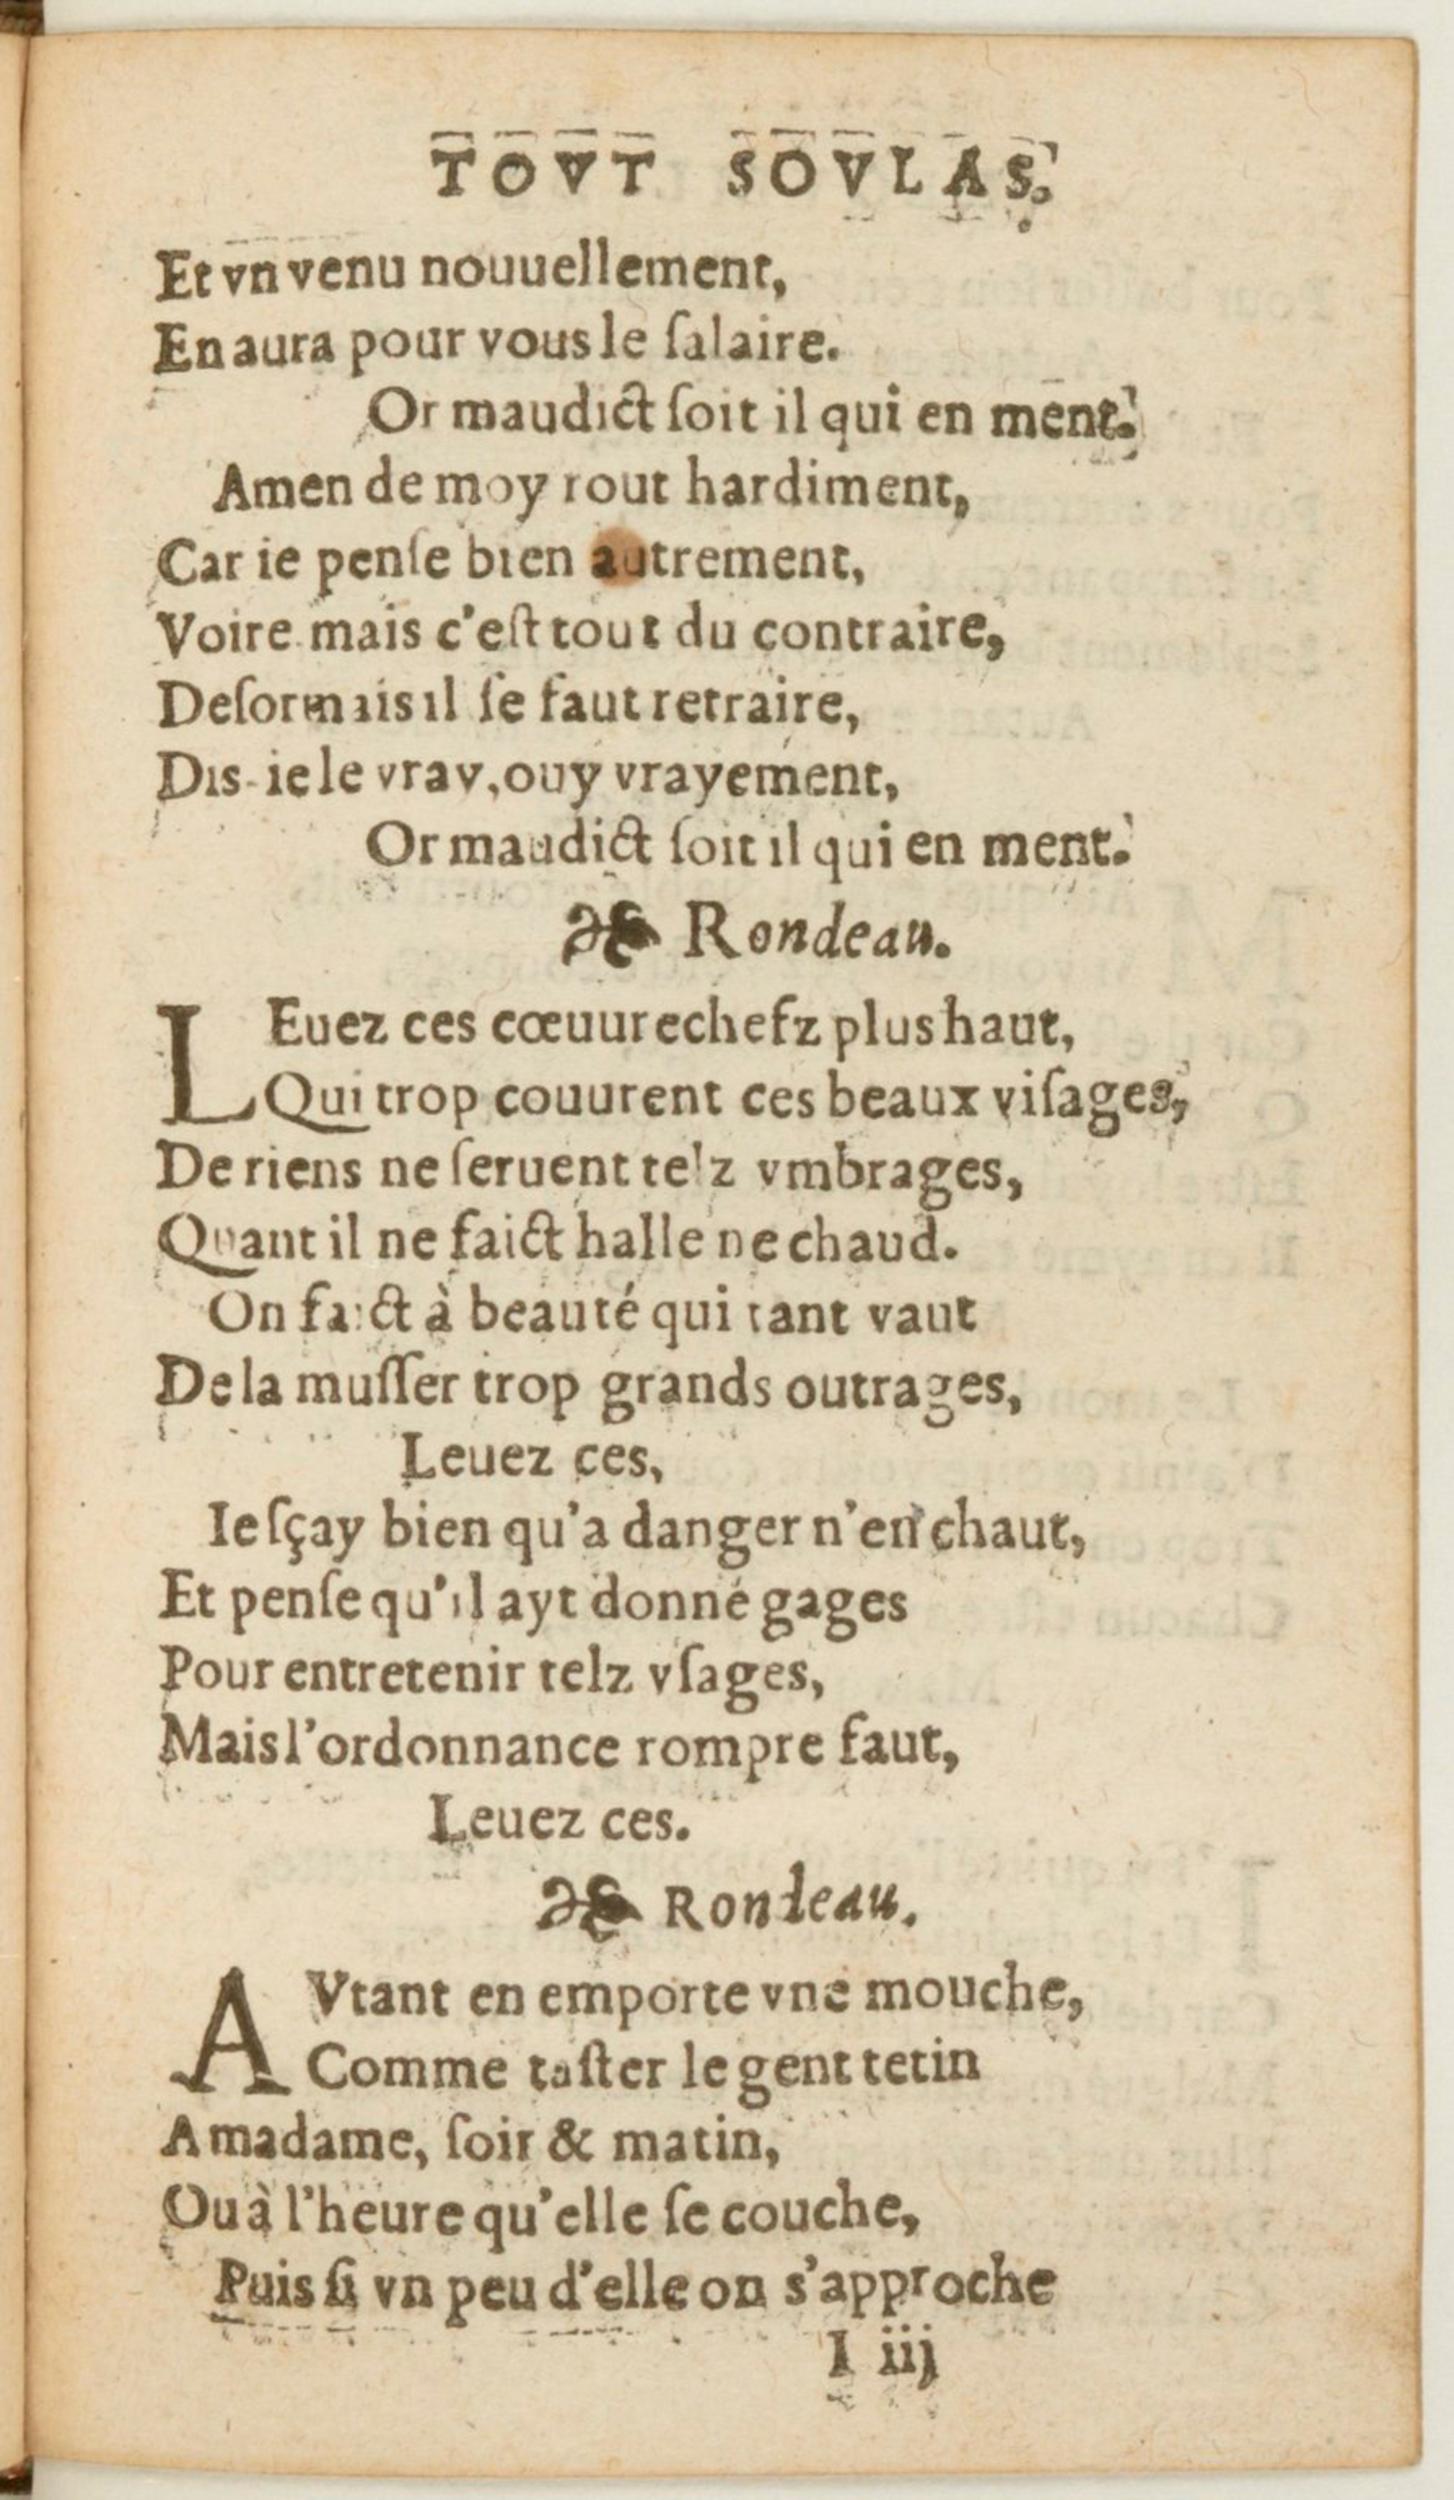 TOVT SOVLAS.
Et vn venu nouuellement,
En aura pour vous le ſalaire.
Or maudict ſoit il qui en ment.
Amen de moy rout hardiment,
Car ie penſe bien autrement,
Voire mais c'eſt tout du contraire,
Deſormais il ſe faut retraire,
Dis-ie le vray, ouy vrayement,
Or maudict ſoit il qui en ment.
Rondeau.
LEuez ces cœuurechefz plus haut,
Qui trop couurent ces beaux viſages,
De riens ne ſeruent telz vmbrages,
Quant il ne faict halle ne chaud.
On faict à beauté qui tant vaut
De la muſſer trop grands outrages,
Leuez ces,
Ie ſçay bien qu'a danger n'en chaut,
Et penſe qu'il ayt donné gages
Pour entretenir telz vſages,
Mais l'ordonnance rompre faut,
Leuez ces.
Rondeau.
AVtant en emporte vne mouche,
Comme taſter le gent tetin
A madame, ſoir & matin,
Ou à l'heure qu'elle ſe couche,
Puis ſi vn peu d'elle on s'approche
I iij